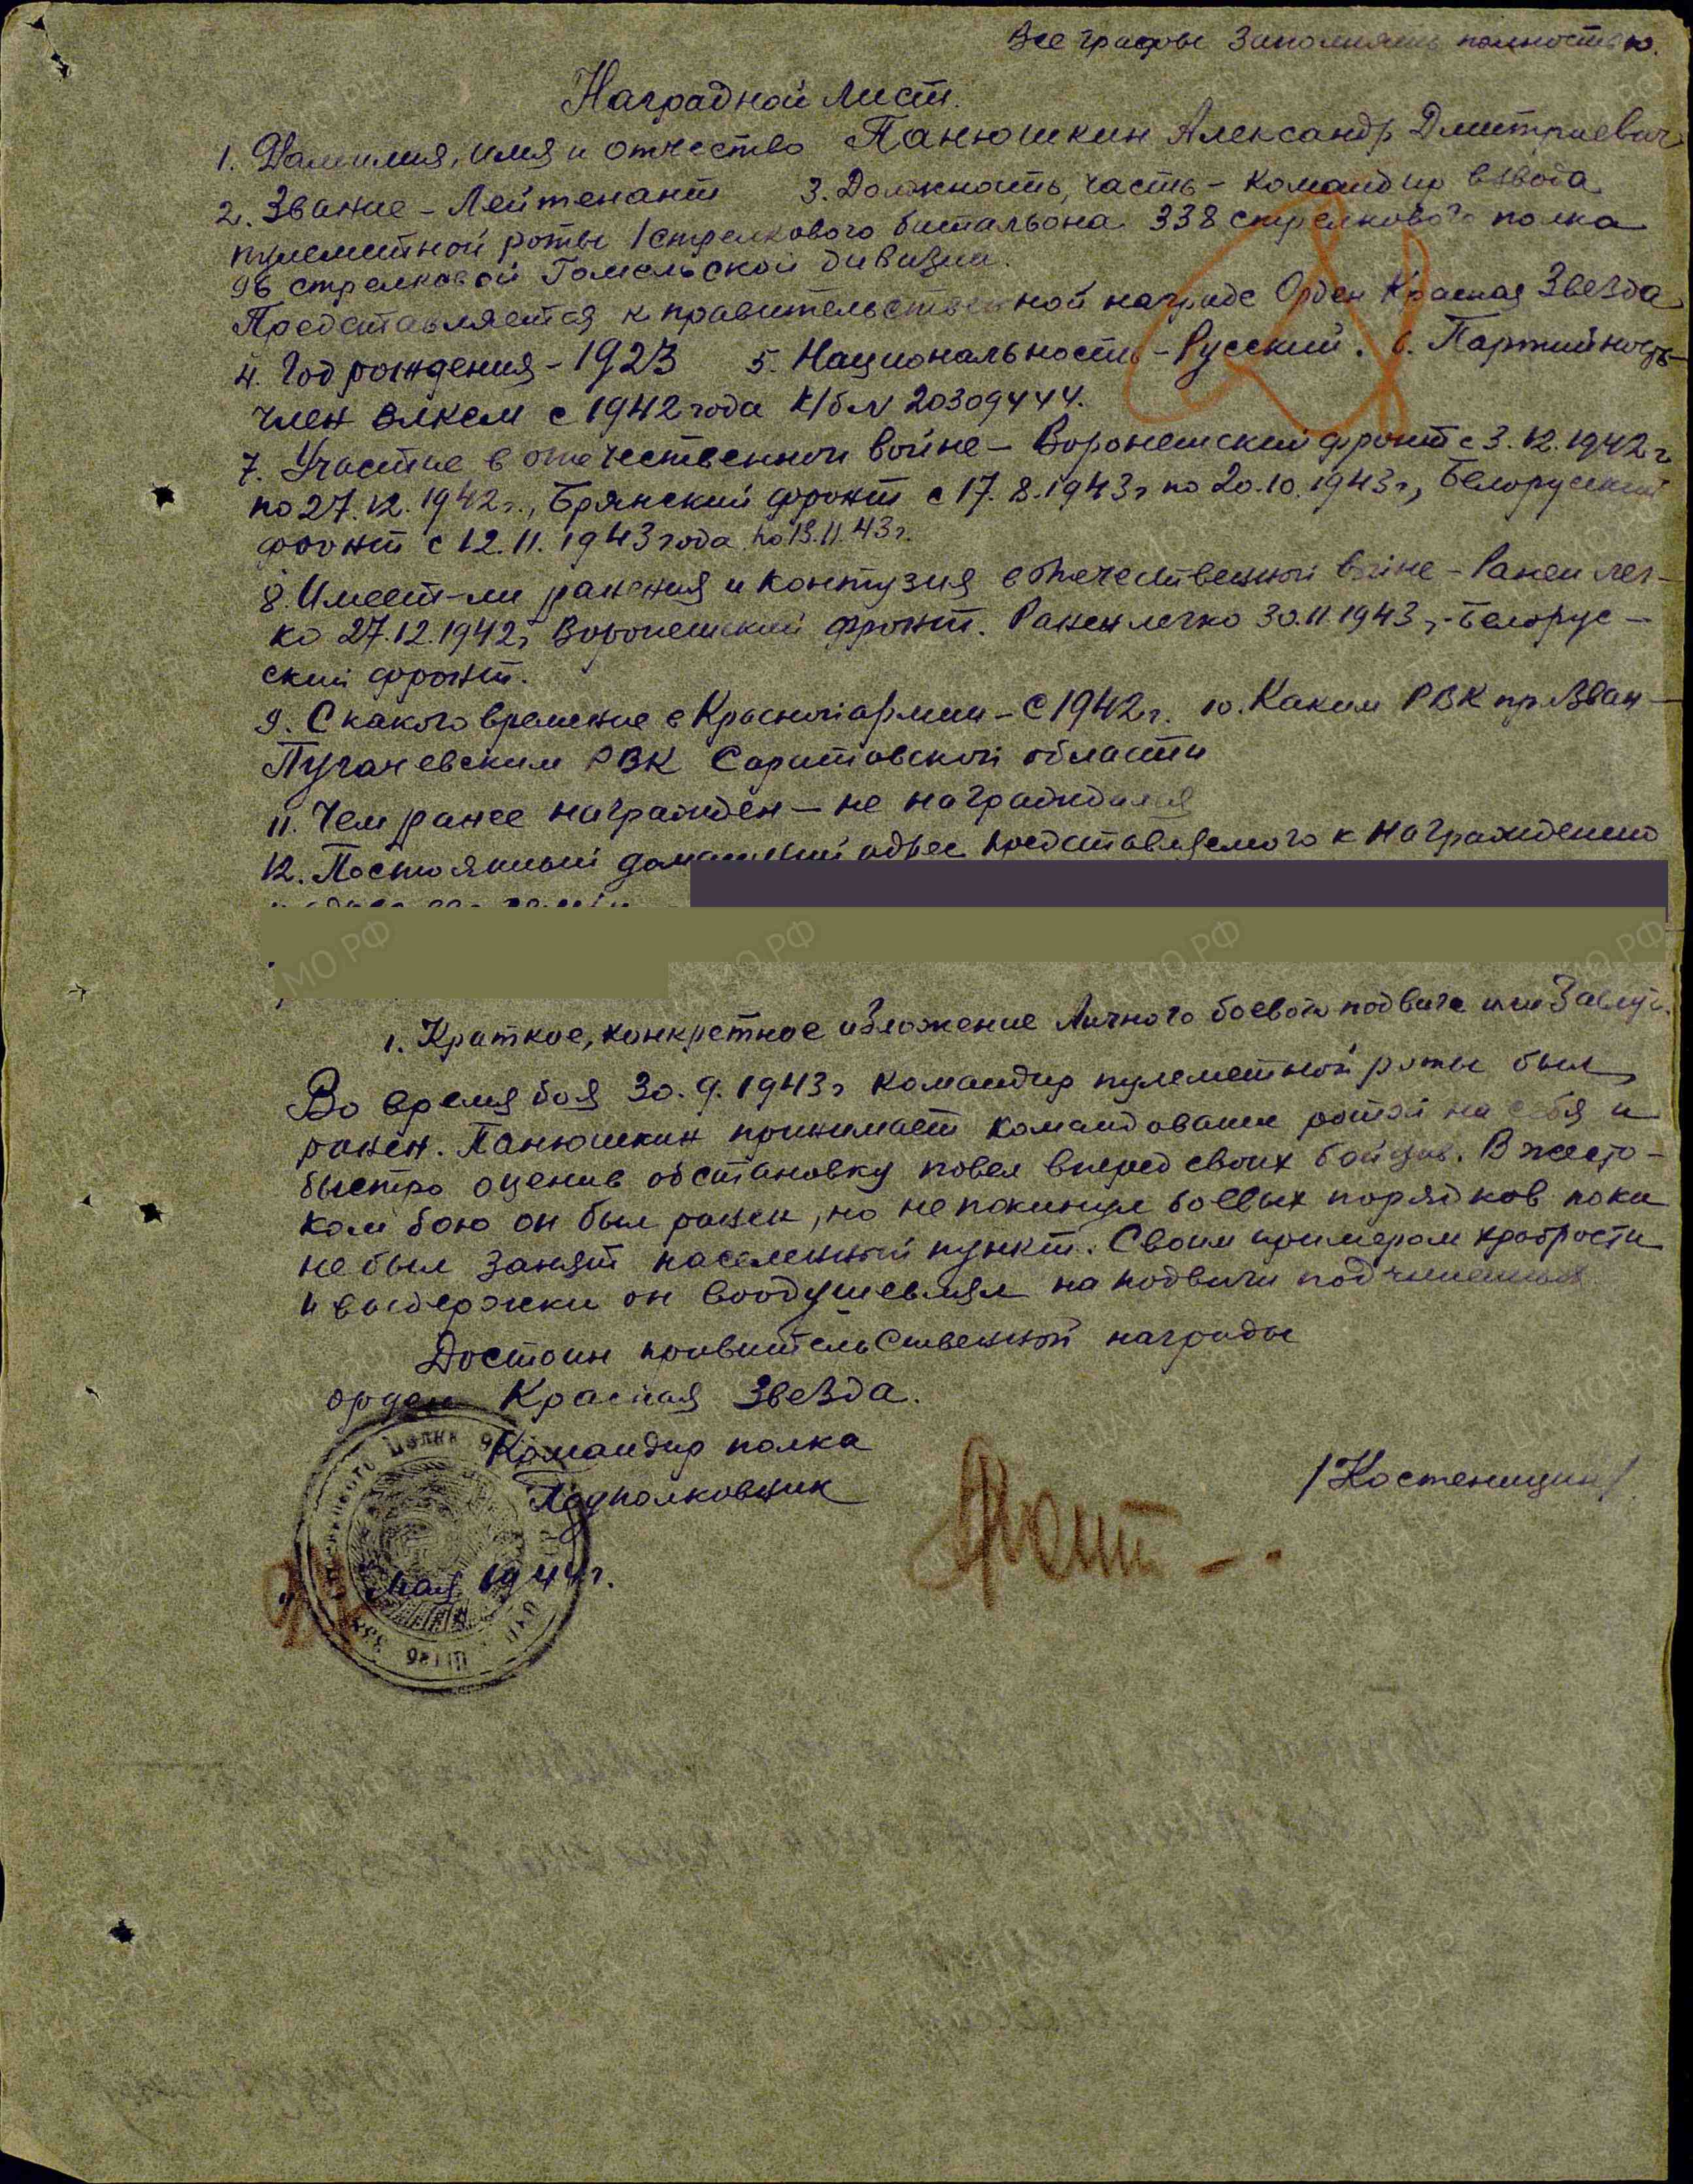 Все графы заполнять полностью.
Наградной лист.
1. Фамилия, имя и отчество Панюшкин Александр Дмитриевич
2. Звание - Лейтенант 3. Должность, часть - командир взвода
пулеметной роты 1 стрелкового батальона 338 стрелкового полка
96 стрелковой Гомельской дивизии.
Представляется к правительственной награде Орден Красная Звезда
4. Год рождения - 1923 5. Национальность - Русский. 6. Партийность -
член влксм с 1942 года к/б № 20309444.
7. Участие в отечественной войне - Воронежский фронт с 3.12.1942 г
по 27.12.1942 г., Брянский фронт с 17.8.1943 г по 20.10.1943 г, Белорусский
фронт с 12.11.1943 года по 13.11.43 г.
8. Имеет-ли ранения и контузия в отечественной войне - Ранен лег-
ко 27.12.1942 г Воронежский фронт. Ранен легко 30.11.1943 г - Белорус-
ский фронт.
9. С какого времение в Красной армии - С 1942 г. 10. Каким РВК призван -
Пугачевским РВК Саратовской области
11. Чем ранее награжден - не награждался
12. Постоянный домашний адрес представляемого к награждению
1. Краткое, конкретное изложение личного боевого подвига или заслуг.
Во время боя 30.9.1943 г командир пулеметной роты был
ранен. Панюшкин принимает командование ротой на себя и
быстро оценив обстановку повел вперед своих бойцов. В жесто-
ком бою он был ранен, но не покинул боевых порядков пока
не был занят населенный пункт. Своим примером храбрости
и выдержки он воодушевлял на подвиги подчиненных
Достоин правительственной награды
орден Красная Звезда.
Командир полка
Подполковник /Костеницин/.
мая 1944 г.
Штаб 338
полка